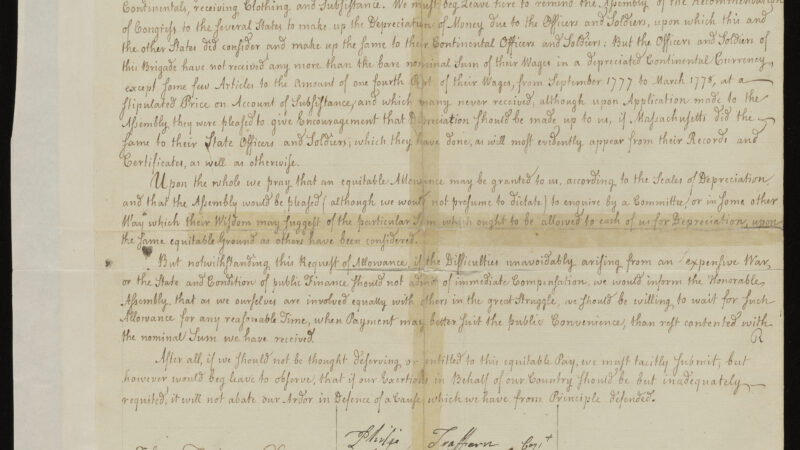 Continentals, receiving Clothing and Subsistance. We must beg Leave here to remind the Assembly of the Recommendation
of Congress to the several States to make up the Depreciation of Money due to the Officers and Soldiers, upon which this and
the other States did consider and make up the same to their Continental Officers and Soldiers; But the Officers and Soldiers of
this Brigade have not received any more than the bare nominal Sum of their Wages in a depreciated Continental Currency,
except some few Articles to the Amount of one fourth Part of their Wages, from September 1777 to March 1778, at a
stipulated Price on Account of Subsistance, and which many never received; although upon Application made to the
Assembly they were pleased to give Encouragement that Depreciation should be made up to us, if Massachusetts did the
same to their State Officers and Soldiers; which they have done, as will most evidently appear from their Records and
Certificates, as well as otherwise.
Upon the whole we pray that an equitable Allowance may be granted to us, according to the Scales of Depreciation
and that the Assembly would be pleased (although we would not presume to dictate) to enquire by a Committee, or in some other
Way which their Wisdom may suggest of the particular Sum which ought to be allowed to each of us for Depreciation, upon
the same equitable Ground as others have been considered.
But notwithstanding this Request of Allowance, if the Difficulties unavoidably arising from an expensive War,
or the State and Condition of public Finance should not admit of immediate Compensation, we would inform the Honorable
Assembly, that as we ourselves are involved equally with others in the great Struggle, we should be willing, to wait for such
Allowance for any reasonable Time, when Payment may better suit the public Convenience, than rest contented with
the nominal Sum we have received.
After all, if we should not be thought deserving, or entitled to this equitable Pay, we must tacitly submit; but
however would beg leave to observe, that if our Exertions in Behalf of our Country should be but inadequately
requited, it will not abate our Ardor in Defence of a Cause which we have from Principle defended.
Philip Traffarn Capt